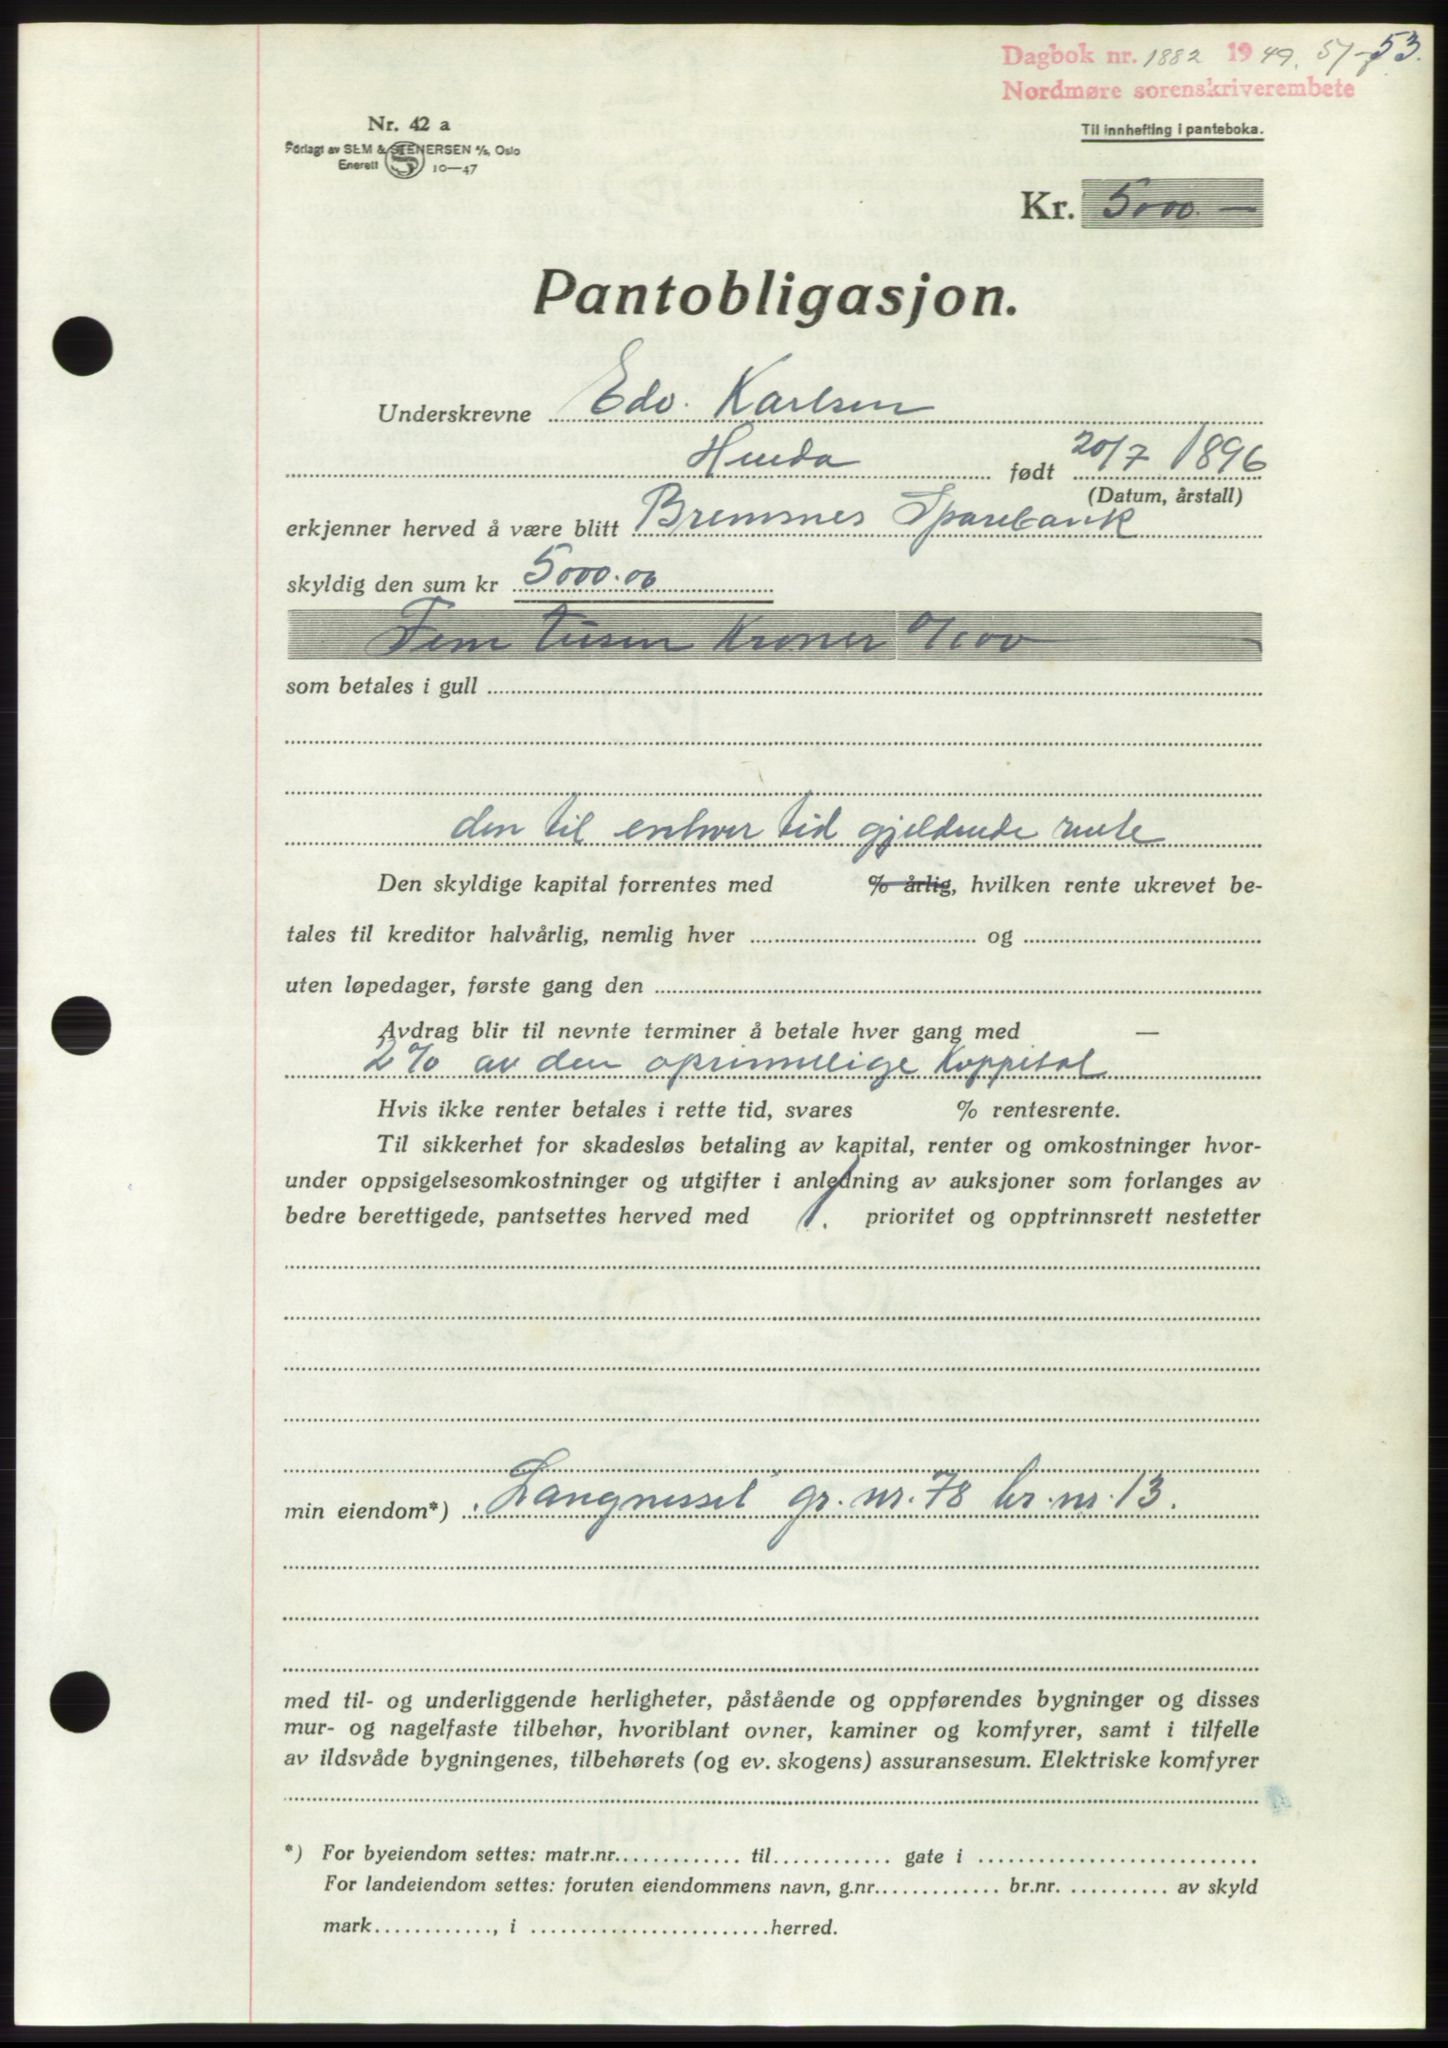 Dagbok nr. 1882 1949. 51-53.
Nordmøre sorenskriverembete
Nr. 42 a
Forlagt av SEM & STENERSEN A/S, Oslo
Enerett 10—47
Til innhefting i panteboka.
Kr. 5000.—
Pantobligasjon.
Underskrevne Edv. Karlsen
Henda født 20/7 1896
(Datum, årstall)
erkjenner herved å være blitt Bremsnes Sparebank
skyldig den sum kr 5000.00
Fem tusen Kroner 0/100
som betales i gull
den til enhver tid gjeldende rente
Den skyldige kapital forrentes med % årlig, hvilken rente ukrevet be-
tales til kreditor halvårlig, nemlig hver og
uten løpedager, første gang den
Avdrag blir til nevnte terminer å betale hver gang med —
2% av den oprinnelige Kappital
Hvis ikke renter betales i rette tid, svares % rentesrente.
Til sikkerhet for skadesløs betaling av kapital, renter og omkostninger hvor-
under oppsigelsesomkostninger og utgifter i anledning av auksjoner som forlanges av
bedre berettigede, pantsettes herved med 1. prioritet og opptrinnsrett nestetter
min eiendom*) "Langnesset" gr. nr. 78 br. nr. 13.
med til- og underliggende herligheter, påstående og oppførendes bygninger og disses
mur- og nagelfaste tilbehør, hvoriblant ovner, kaminer og komfyrer, samt i tilfelle
av ildsvåde bygningenes, tilbehørets (og ev. skogens) assuransesum. Elektriske komfyrer
*) For byeiendom settes: matr.nr. til gate i
For landeiendom settes: foruten eiendommens navn, g.nr. br.nr. av skyld
mark, i herred.